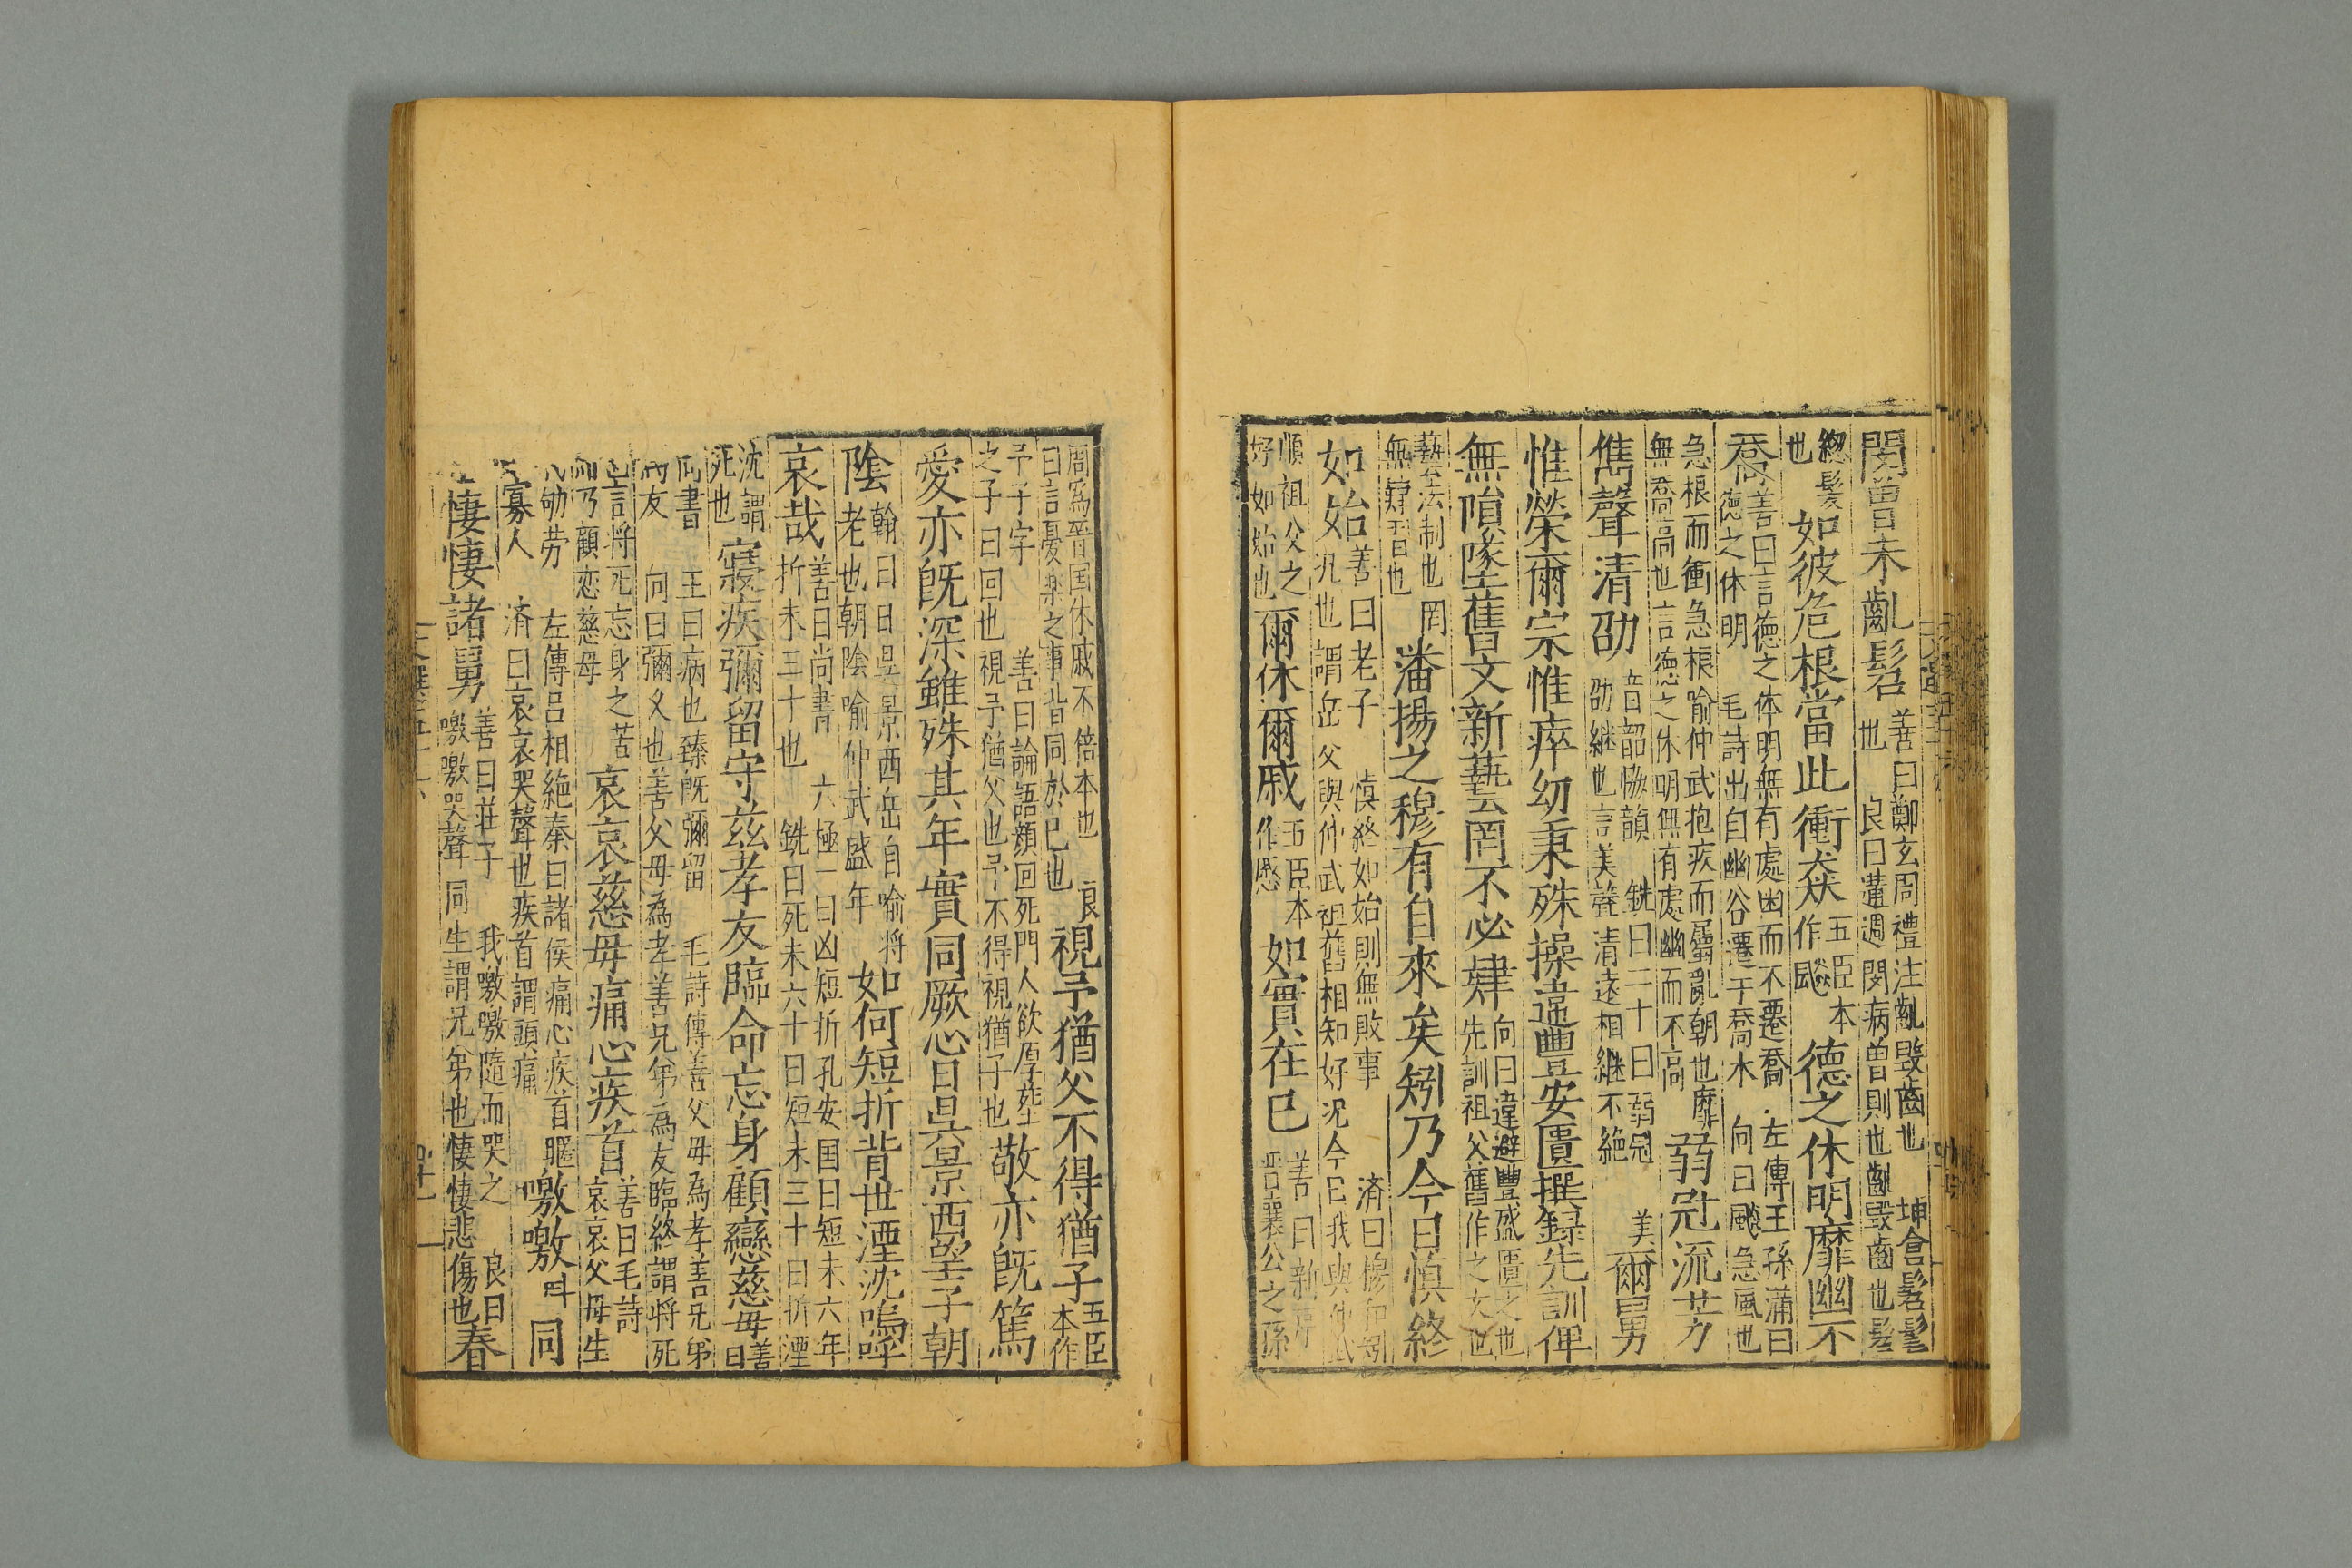 閔曽未齓髫善曰鄭玄周禮注齓毀齒也 坤倉髫髦
也 良曰遘遇閔病曽則也齓毀齒也髫
緫髮也 如彼危根當此衝猋五臣本作飈 德之休明靡幽不
喬善曰言德之体明無有處幽而不遷喬 左傳王孫蒲曰
德之休明 毛詩出自幽谷遷于喬木 向曰飈急風也
急根而衝急根喻仲武抱疾而屬亂朝也靡
無喬高也言德之休明無有處幽而不高
弱冠流芳
雋聲清劭音韶恊韻 銑曰二十曰弱冠 美
劭継也言美聲清遠相継不絶
爾舅
惟榮爾宗惟瘁幼秉殊操違豐安匱撰録先訓俾
無隕墜舊文新藝罔不必肄向曰違避豐盛匱之也
先訓祖父舊作之文也
藝法制也罔
無肄習也
潘揚之穆有自來矣矧乃今日慎終
如始善曰老子 慎終如始則無敗事 済曰楊仲弱
况也謂岳父與仲武祖舊相知好况今日我與仲武
順祖父之
好如始也
爾休爾戚五臣本作慼 如實在已善曰新序
晋襄公之孫
周為晋国休戚不俻本也 良
曰言憂樂之事皆同於已也
視予猶父不得猶子五臣本作
予子字 善曰論語顔回死門人欲厚塟
之子曰回也視予猶父也予不得視猶子也
敬亦旣篤
愛亦旣深雖殊其年實同厥心日昃景西望子朝
陰翰曰日昃景西岳自喻将
老也朝陰喻仲武盛年
如何短折背世湮沈嗚呼
哀哉善曰尚書 六極一曰凶短折孔安国曰短未六年
折未三十也 銑曰死未六十曰短未三十曰折湮
沈謂
死也
寢疾彌留守兹孝友臨命忘身顧戀慈毋善曰
尚書 王曰病也臻旣彌留 毛詩傳善父毋為孝善兄弟
為友 向曰彌乂也善父毋為孝善兄弟為友臨終謂将死
也言将死忘身之苦
而乃顧恋慈毋
哀哀慈毋痛心疾首善曰毛詩
哀哀父毋生
我劬劳 左傳吕相絶秦曰諸侯痛心疾首暱
寡人 済曰哀哀哭聲也疾首謂頭痛
噭噭叫同
生悽悽諸舅善曰莊子 我噭噭隨而哭之 良曰
噭噭哭聲同生謂兄弟也悽悽悲傷也
春